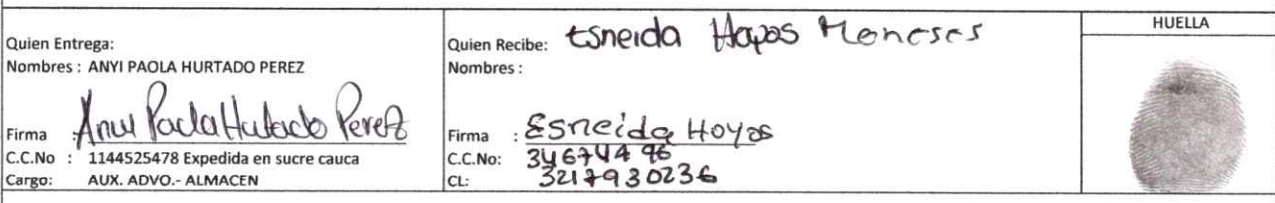 Quien Entrega:
Nombres : ANYI PAOLA HURTADO PEREZ
Firma : Anyi Paola Hurtado Perez
C.C.No : 1144525478 Expedida en sucre cauca
Cargo: AUX. ADVO.- ALMACEN
Quien Recibe: Esneida Hoyos Meneses
Nombres :
Firma : Esneida Hoyos
C.C.No: 34674496
CL: 3217930236
HUELLA